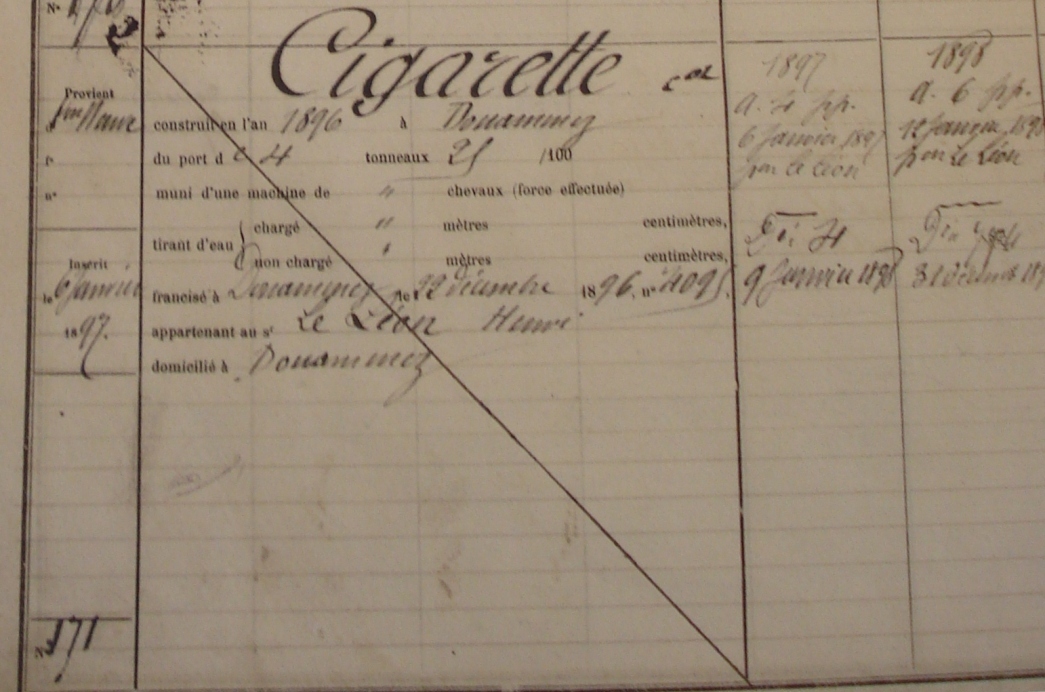 N°
Cigarette cot
1897
1898
Provient
a. 4 pp.
a. 6 pp.
construit en l'an 1896 à Douarnenez
6 Janvier 1897
12 Janvier 1898
du port d e 4 tonneaux 25 /100
par Le Léon
par Le Léon
n°
muni d'une machine de " chevaux (force effectuée)
tirant d'eau
chargé " mètres centimètres,
non chargé " mètres centimètres,
Inscrit
le 6 Janvier
1897.
francisé à Douarnenez le 22 décembre 1896, n° 4095.
9 Janvier 1898
appartenant au sr Le Léon Henri
domicilié à Douarnenez
N° 171